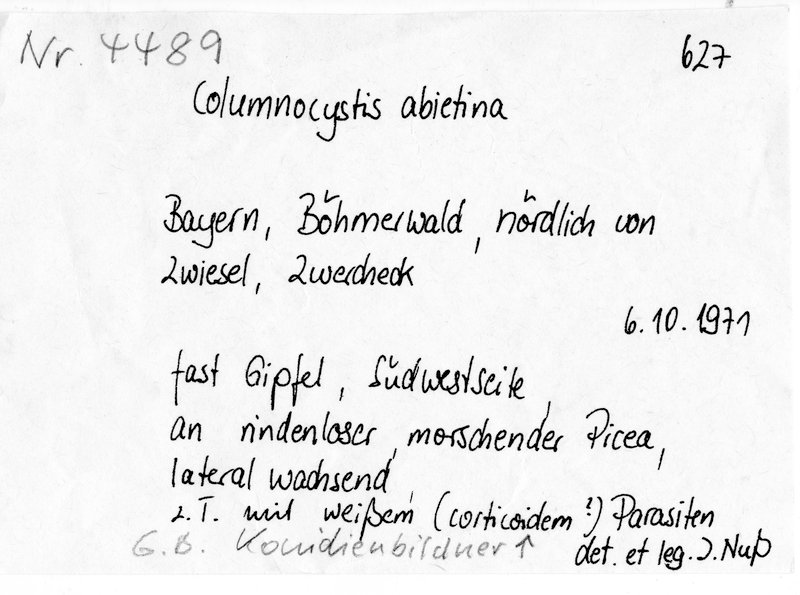 Nr. 4489 627
Columnocystis abietina
Bayern, Böhmerwald, nördlich von
Zwiesel, Zwercheck
6.10.1971
fast Gipfel, Südwestseite,
an rindenloser, morschender Picea,
lateral wachsend,
z.T. mit weißem (corticoidem?) Parasiten
G.B. Konidienbildner ↑ det. et leg. J. Nuß